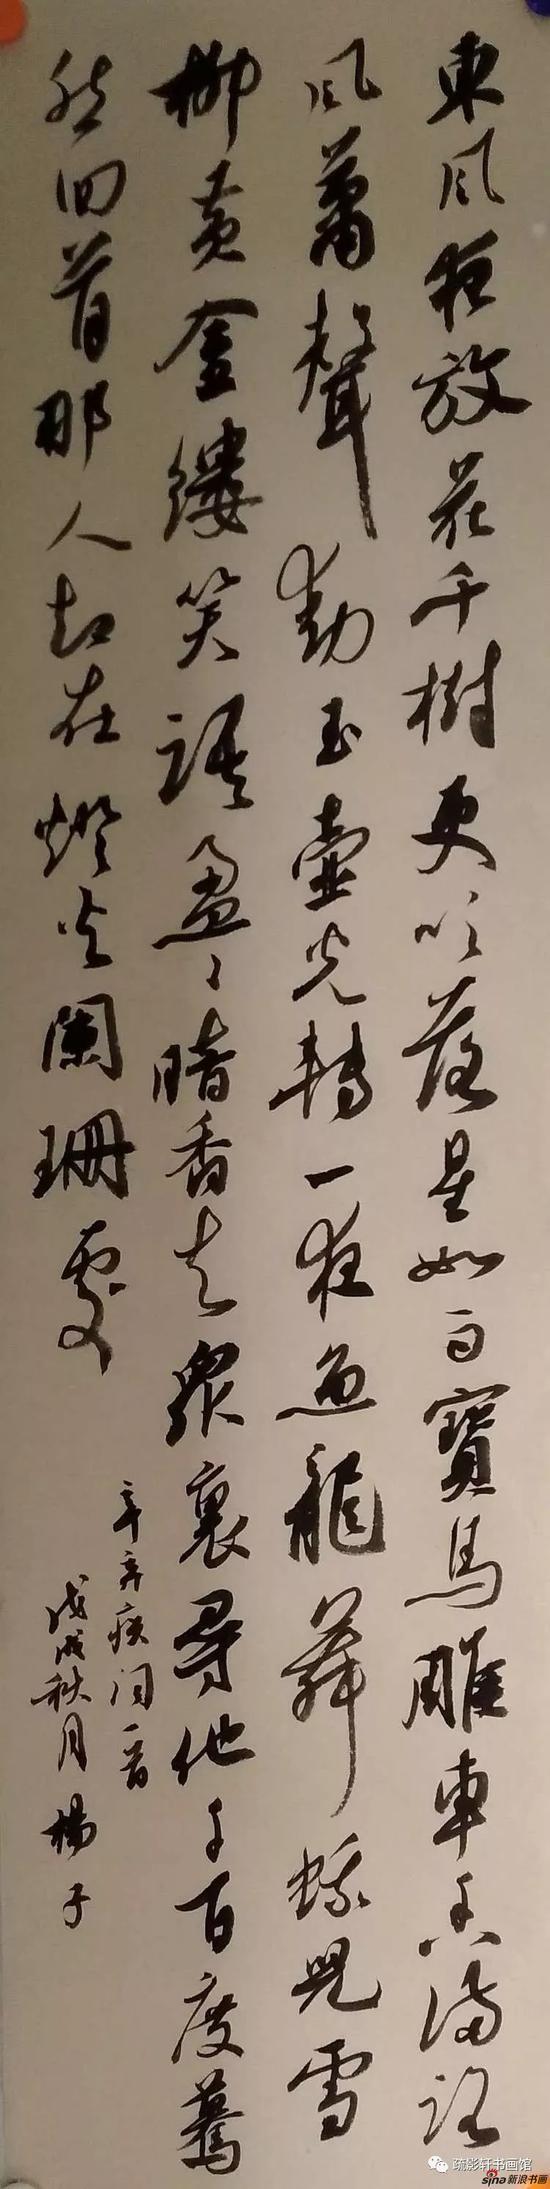 東風夜放花千樹更吹落星如雨寶馬雕車香滿路
鳳蕭聲動玉壺光轉一夜魚龍舞蛾兒雪
柳黃金縷笑語盈々暗香去眾裏尋他千百度驀
然回首那人却在燈火闌珊處
辛弃疾词一首
戊戌秋月楊子
疏影轩书画馆
sina新浪书画